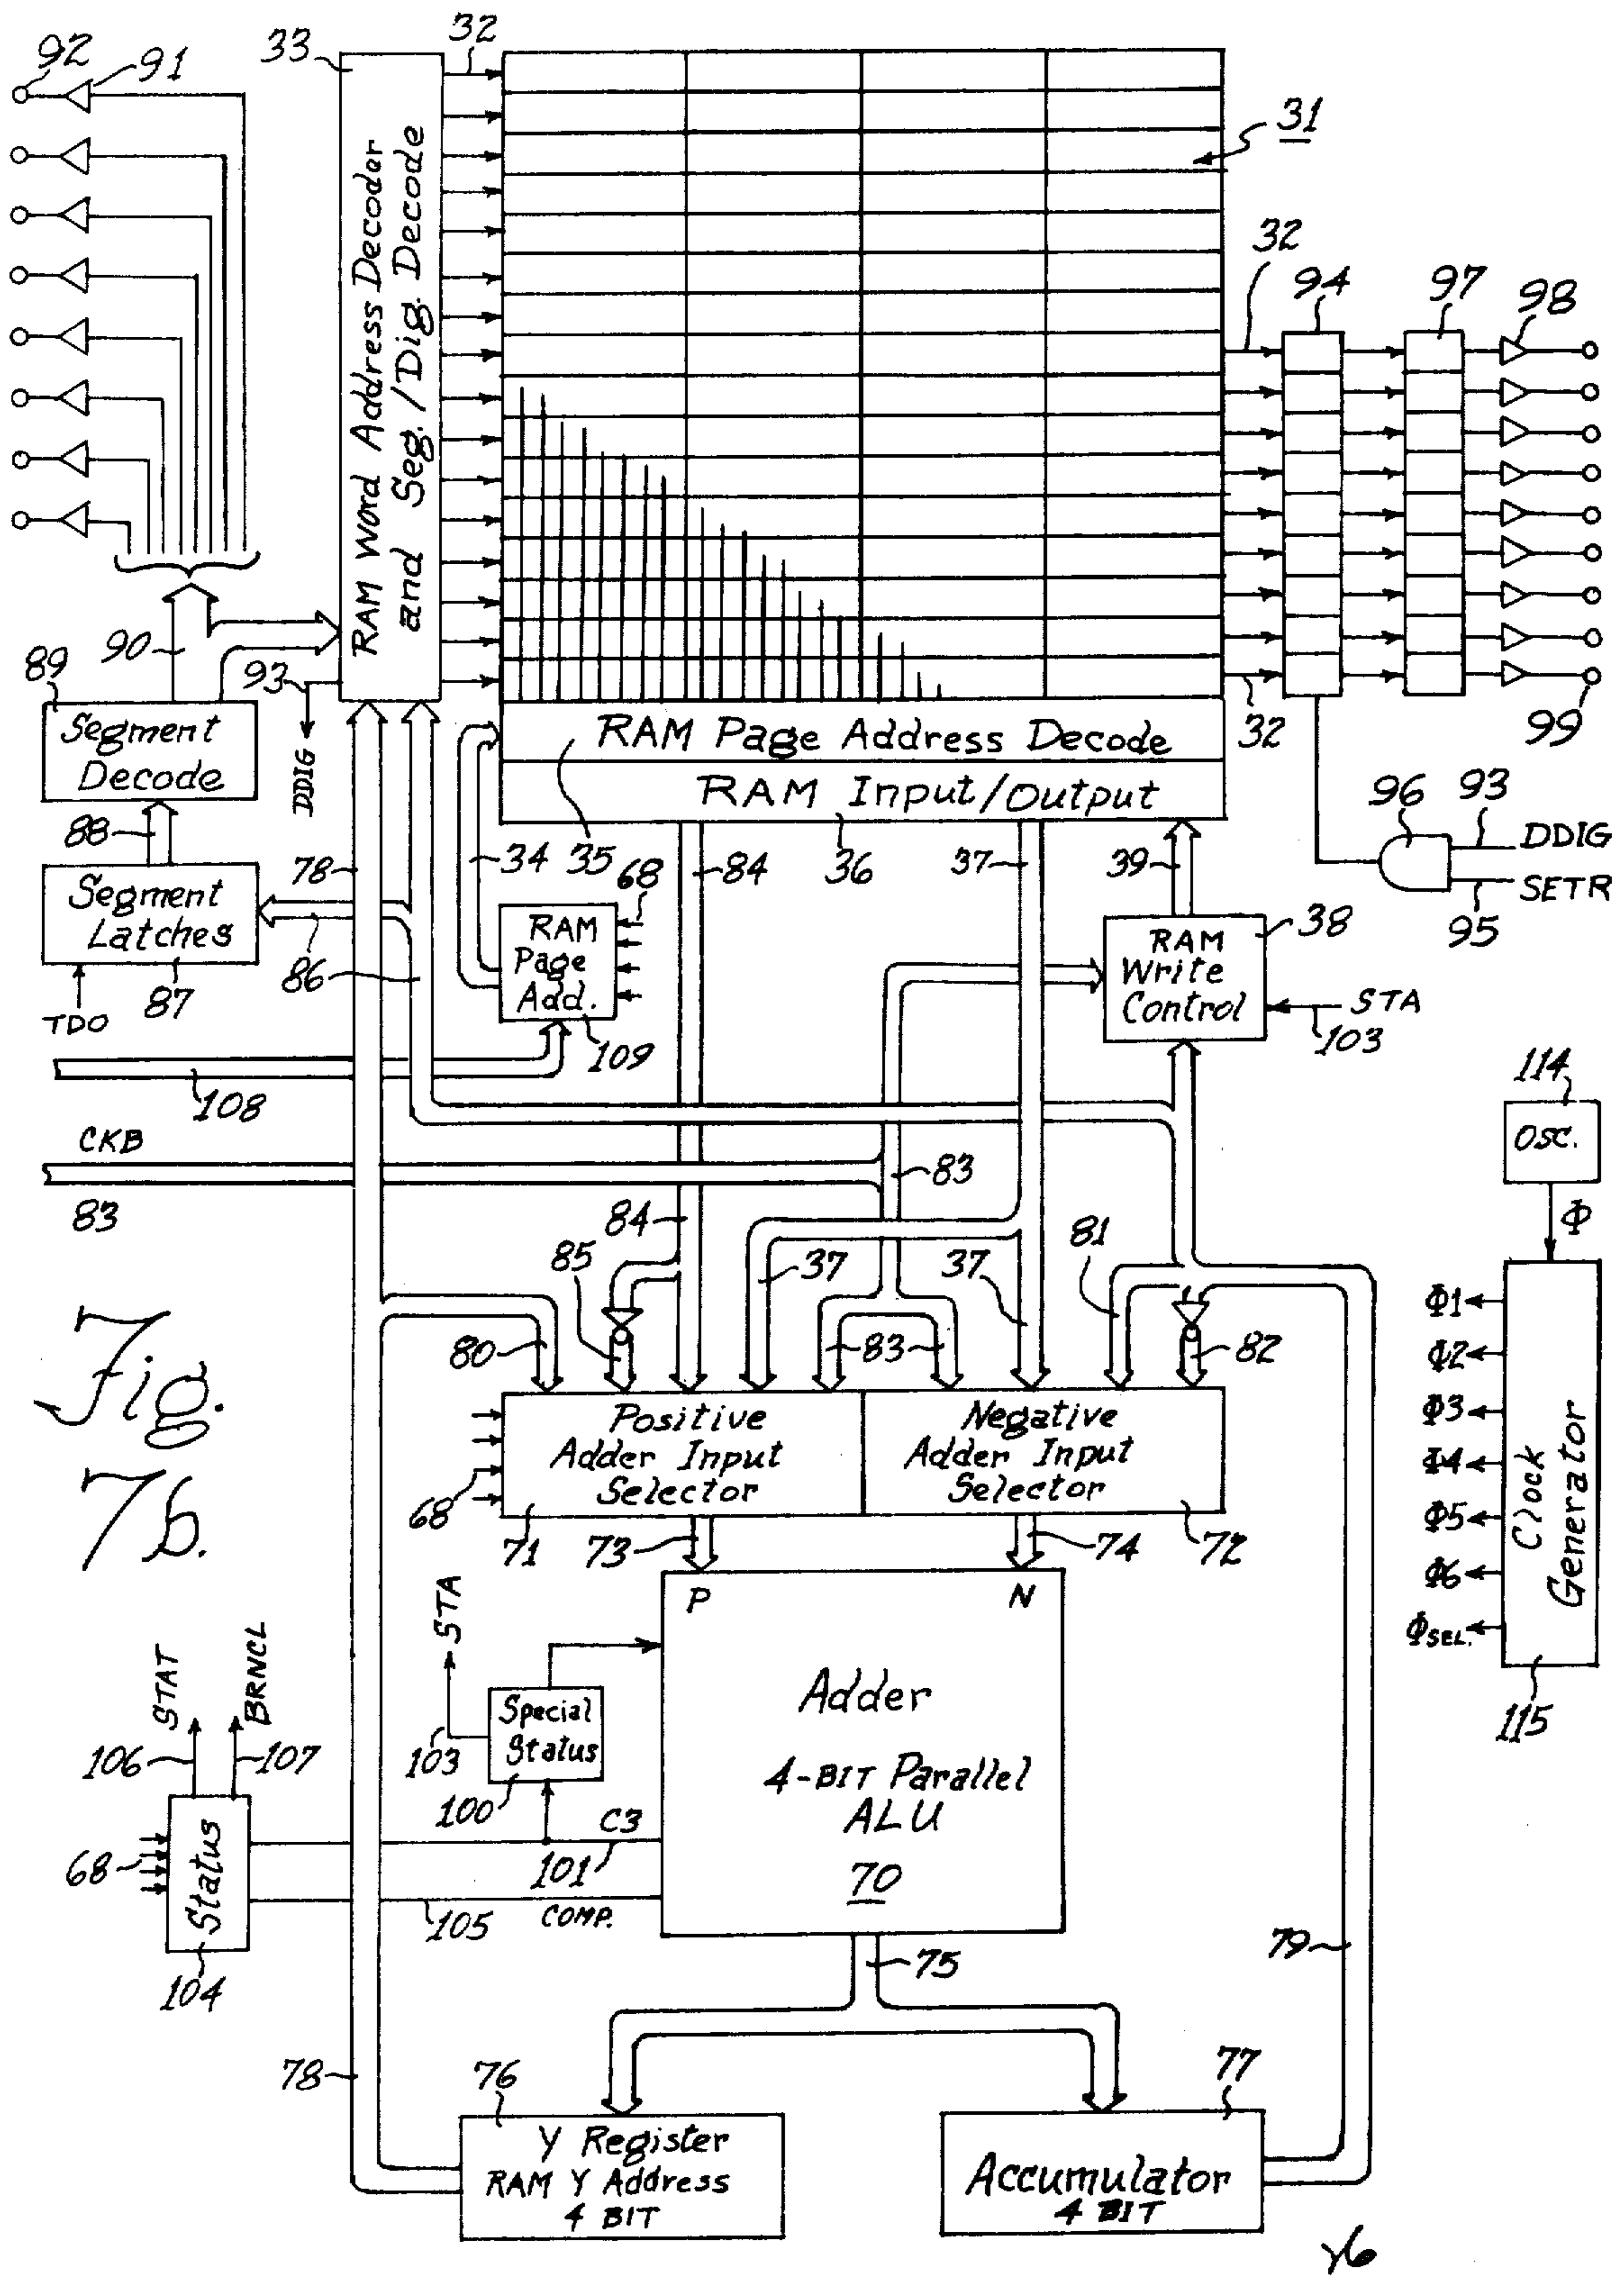 92
91
33
32
RAM Word Address Decoder
and Seg./Dig. Decode
31
32
94
97
98
89
90
93
DDIG
Segment
Decode
88
Segment
Latches
TDO
87
86
78
34
35
RAM Page Address Decode
RAM Input/Output
84
36
37
39
32
99
96
93
DDIG
SETR
95
68
RAM
Page
Add.
109
38
RAM
Write
Control
STA
103
108
CKB
83
83
114
Osc.
Φ
84
85
37
37
81
80
83
82
Fig.
7b.
Positive
Adder Input
Selector
Negative
Adder Input
Selector
68
71
73
74
72
Φ1
Φ2
Φ3
Φ4
Φ5
Φ6
ΦSEL.
Clock
Generator
115
P
N
STA
STAT
BRNCL
106
107
103
Special
Status
100
Adder
4-BIT Parallel
ALU
70
C3
101
68
Status
104
105
COMP.
75
79
78
76
77
Y Register
RAM Y Address
4 BIT
Accumulator
4 BIT